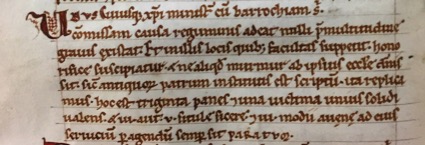 cuiusq; xp̄i minist̄ cū barrochiam s̄.
cōmissam causa regiminis adeat nulli p̄ multitudine
grauis existat. Et in illis locis quib; facultas suppetit hono
rifice suscipiatur. & ne aliqd murmur ab ipsius ecclē
sit. sic antiquor patrum institutis est scriptū. ita replica
mus. hoc est triginta panes una uictima unius solidi
ualens. & iii. aut. v. situle sicere. iii. modii auene ad eius
seruiciū p̱agendum semp̱ sit paratum.